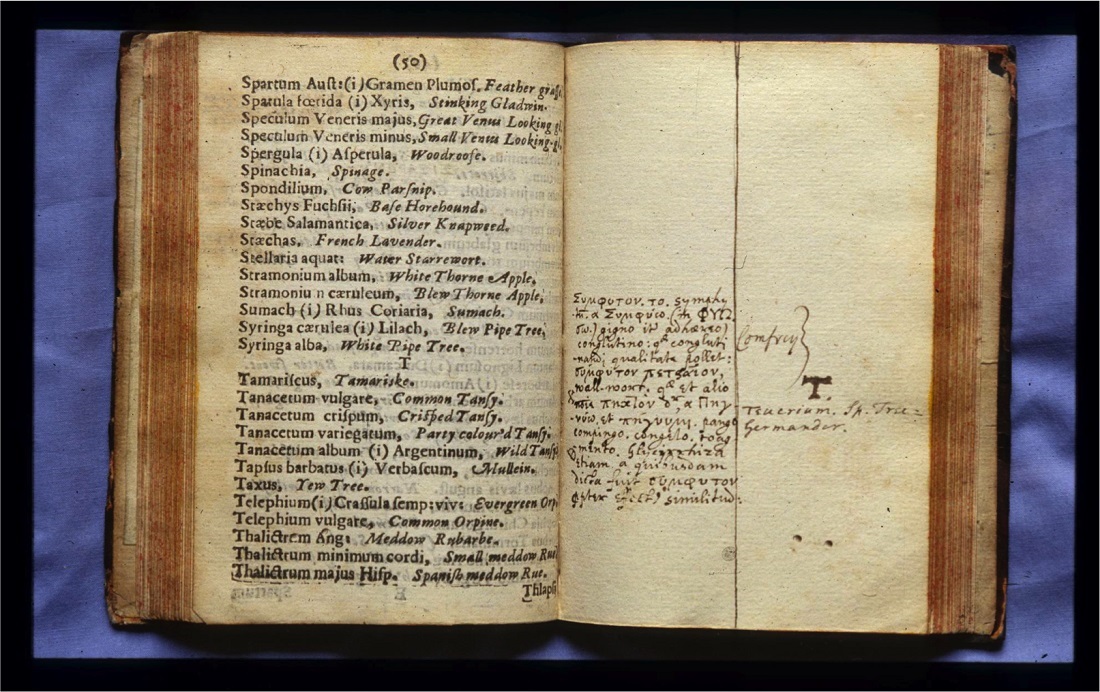 (50)
Spartum Auſt: (i) Gramen Plumoſ. Feather graſſ
Spatula fœtida (i) Xyris, Stinking Gladwin.
Speculum Veneris majus, Great Venus Looking gl.
Speculum Veneris minus, Small Venus Looking-gl.
Spergula (i) Aſperula, Woodrooſe.
Spinachia, Spinage.
Spondilium, Cow Parſnip.
Stæchys Fuchſii, Baſe Horehound.
Stæbe Salamantica, Silver Knapweed.
Stæchas, French Lavender.
Stellaria aquat: Water Starrewort.
Stramonium album, White Thorne Apple,
Stramoniu n cæruleum, Blew Thorne Apple,
Sumach (i) Rhus Coriaria, Sumach.
Syringa cærulea (i) Lilach, Blew Pipe Tree,
Syringa alba, White Pipe Tree.
T
Tamariſcus, Tamariske.
Tanacetum vulgare, Common Tanſy.
Tanacetum criſpum, Criſped Tanſy.
Tanacetum variegatum, Party colour'd Tanſy.
Tanacetum album (i) Argentinum, Wild Tanſy
Tapſus barbatus (i) Verbaſcum, Mullein.
Taxus, Yew Tree.
Telephium (i) Craſſula ſemp: viv: Evergreen Orp
Telephium vulgare, Common Orpine.
Thalictrem Ang: Meddow Rubarbe.
Thalictrum minimum cordi, Small meddow Rue
Thalictrum majus Hiſp. Spaniſh meddow Rue.
E Thlapſi
Συμφυτον. το.
α Συμφύω.
gigno adhæreo)
conglutino: congluti
qualitate pollet:
συμφυτον πετραῖον,
wall-wort. et alio
et pango
compingo. congelo.
etiam. a quibusdam
dicta fuit συμφυτον
similitud:
Comfrey
T.
Teucrium. Sp. Tree=
Germander.